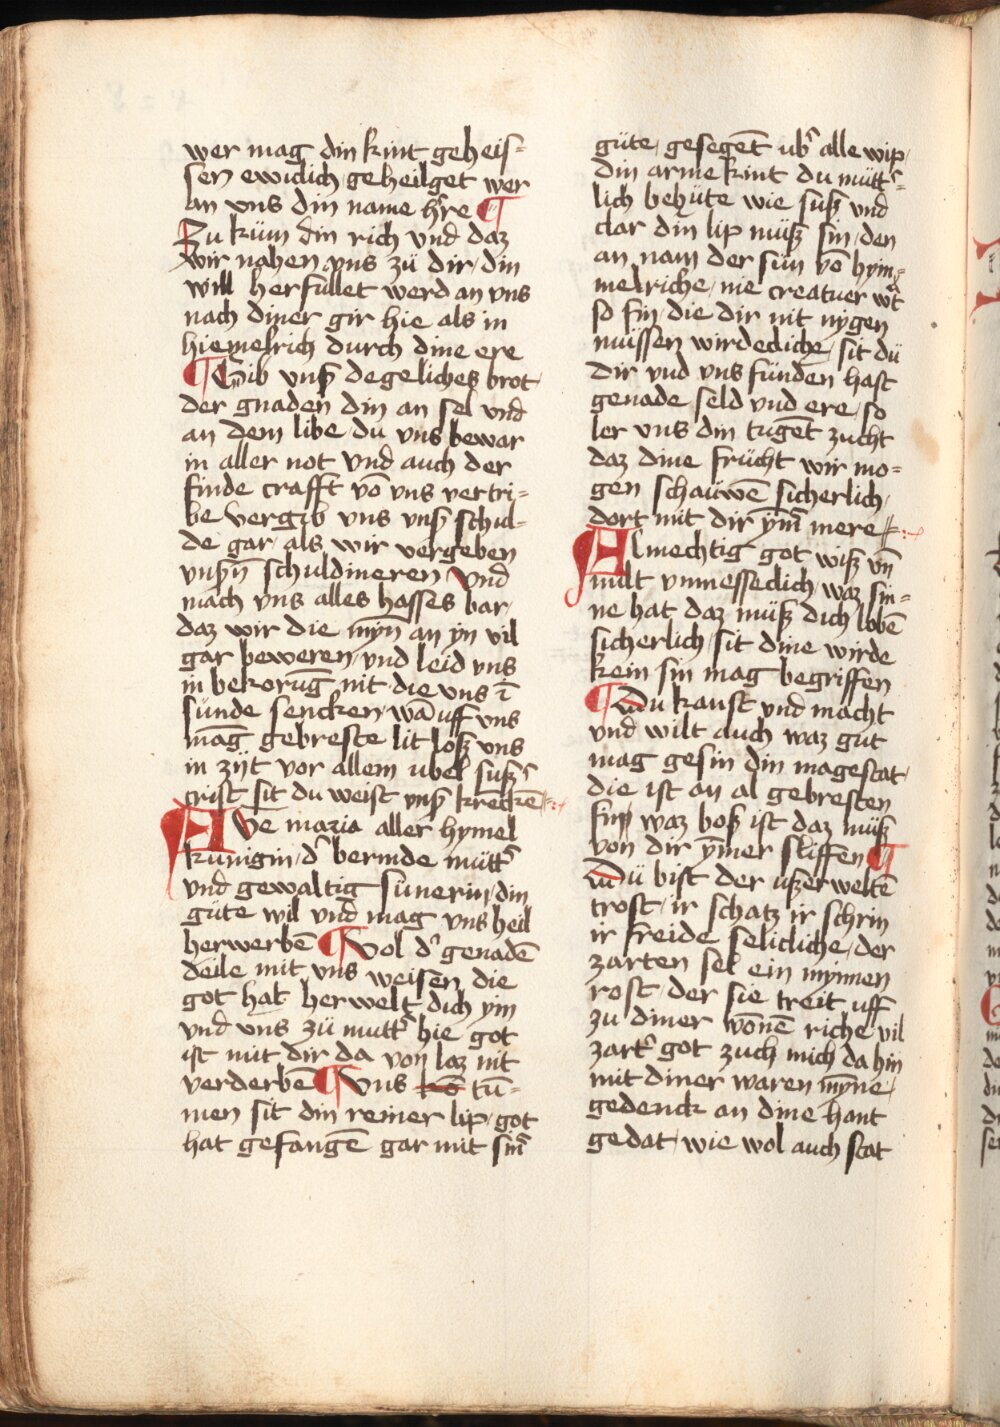 wer mag din kint geheis=
sen ewiclich geheilget wer
an vns din name h're ¶
Zu küm din rich vnd daz
wir nahen vns zü dir / din
will herfullet werd an vns
nach diner gir hie als in
hiemelrich durch dine ere
¶ Gib vnß degeliches brot
der gnaden din an sel vnd
an dem libe / du vns bewar
in aller not vnd auch der
finde crafft vō vns vertri=
be vergib vns vnß schul=
de gar / als wir vergeben
vnßn̄ schuldineren vnd
mach vns alles hasses bar /
daz wir die myn̄ an yn vil
gar beweren / vnd leid vns
in bekorūg nit / die vns ī
sünde sencken / wā uff vns
mag gebreste lit loß vns
in zijt vor allem ubel suß'
crist sit du weist vnß krēckē
Ave maria aller hymel
kunigin / d' bermde mütt'
vnd gewaltig sunerin / din
güte wil vnd mag vns heil
herwerbē ¶ Vol d' genadē
deile mit vns weisen die
got hat herwelt dich yin
vnd vns zü mutt' hie got
ist mit dir da von laz nit
verderbē ¶ Vns kō tū=
men sit din reiner lip / got
hat gefangē gar mit sin'
güte / gesegēt ub' alle wip /
din arme kint du mütt'=
lich behüte wie suß vnd
clar din lip müß sin / den
an nam der sün vō hym=
melriche / nie creatuer w't
so fin / die dir nit nygen
müssen wirdecliche / sit dü
dir vnd vns fünden hast
genade seld vnd ere / so
ler vns din tugēt zucht
daz dine frücht wir mo=
gen schauwē sicherlich /
dort mit dir ȳm' mere
Almechtig got wiß vn̄
milt vnmesseclich / waz sin=
ne hat daz müß dich lobē
sicherlich / sit dine wirde
kein sin mag begriffen
¶ Du kanst vnd macht
vnd wilt auch waz gut
mag gesin din magestat /
die ist an al gebresten
fin / waz boß ist daz müß
von dir ȳmer sliffen ¶
Dü bist der ußerweltē
trost / ir schatz ir schrin
ir freide selicliche / der
zarten sel ein mynnen
rost / der sie treit uff
zu diner wōnē riche / vil
zart' got zuch mich da hin
mit diner waren mȳne /
gedenck an dine hant
gedat / wie wol auch stat